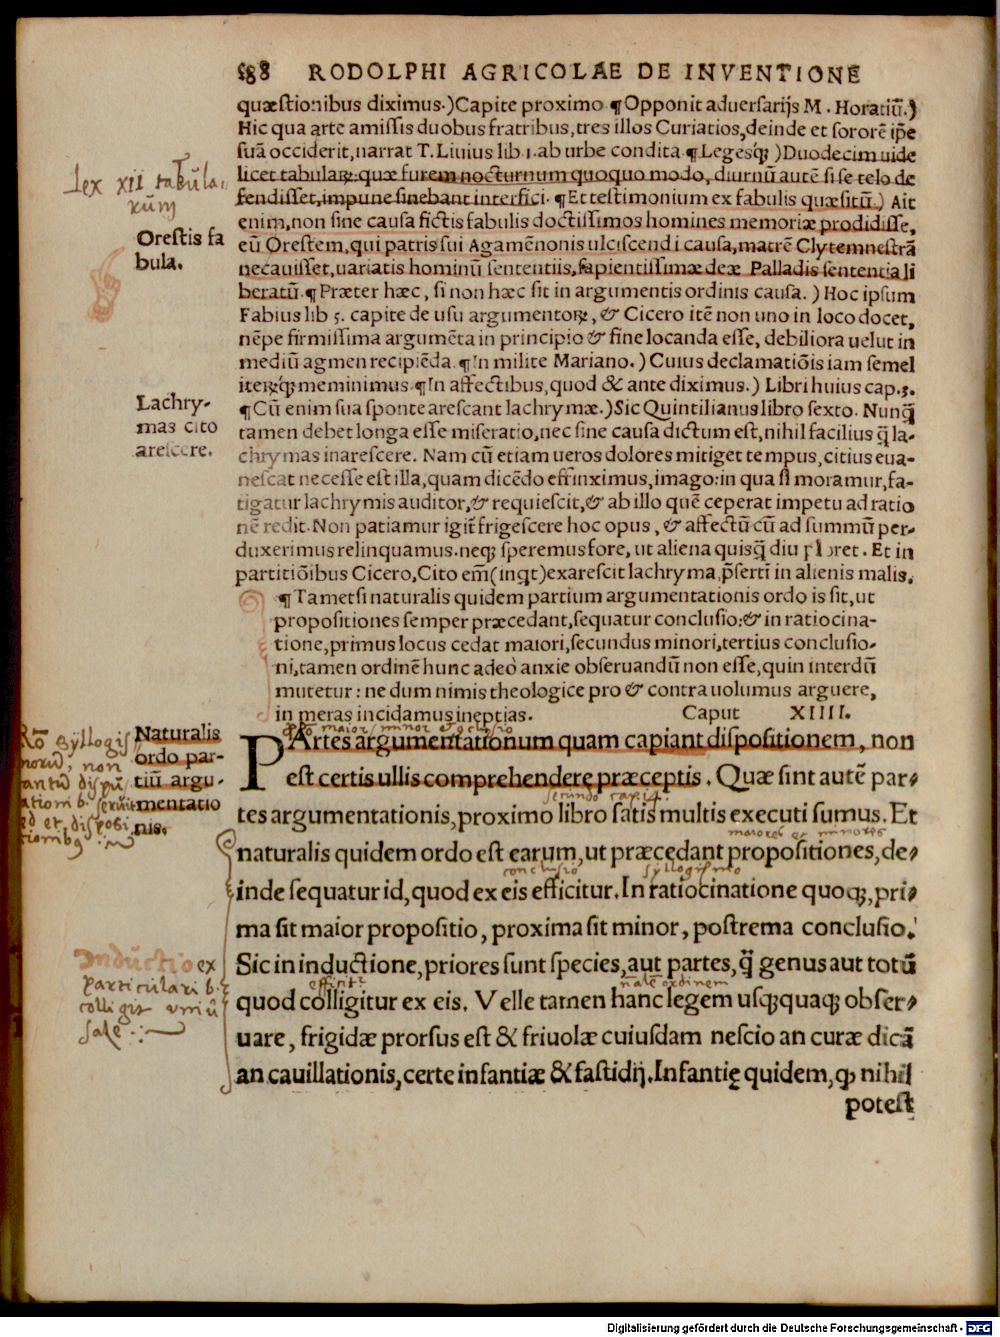 588 RODOLPHI AGRICOLAE DE INVENTIONE
quæstionibus diximus.) Capite proximo ¶ Opponit aduersarijs M. Horatiũ.)
Hic qua arte amissis duobus fratribus, tres illos Curiatios, deinde et sororẽ ip̃e
suã occiderit, narrat T. Liuius lib 1. ab urbe condita ¶ Legesqꝫ) Duodecim uide
licet tabulaꝝ: quæ furem nocturnum quoquo modo, diurnũ autẽ si se telo de
fendisset, impune sinebant interfici. ¶ Et testimonium ex fabulis quæsitũ.) Ait
enim, non sine causa fictis fabulis doctissimos homines memoriæ prodidisse,
eũ Orestem, qui patris sui Agamẽnonis ulciscendi causa, matrẽ Clytemnestrã
necauisset, uariatis hominũ sententiis, sapientissimæ deæ Palladis sententia li
beratũ. ¶ Præter hæc, si non hæc sit in argumentis ordinis causa.) Hoc ipsum
Fabius lib 5. capite de usu argumentoꝝ, & Cicero itẽ non uno in loco docet,
nẽpe firmissima argumẽta in principio & fine locanda esse, debiliora uelut in
mediũ agmen recipiẽda. ¶ In milite Mariano.) Cuius declamatiõis iam semel
iteꝝqꝫ meminimus. ¶ In affectibus, quod & ante diximus.) Libri huius cap. 3.
¶ Cũ enim sua sponte arescant lachrymæ.) Sic Quintilianus libro sexto. Nunq̃
tamen debet longa esse miseratio, nec sine causa dictum est, nihil facilius q̃ la-
chrymas inarescere. Nam cũ etiam ueros dolores mitiget tempus, citius eua-
nescat necesse est illa, quam dicẽdo effinximus, imago: in qua si moramur, fa-
tigatur lachrymis auditor, & requiescit, & ab illo quẽ ceperat impetu ad ratio
nẽ redit. Non patiamur igit̃ frigescere hoc opus, & affectũ cũ ad summũ per-
duxerimus relinquamus. neqꝫ speremus fore, ut aliena quisq̃ diu ploret. Et in
partitiõibus Cicero, Cito em̃ (inqt) exarescit lachryma, p̃sertĩ in alienis malis.
¶ Tametsi naturalis quidem partium argumentationis ordo is sit, ut
propositiones semper præcedant, sequatur conclusio: & in ratiocina-
tione, primus locus cedat maiori, secundus minori, tertius conclusio-
ni, tamen ordinẽ hunc adeò anxie obseruandũ non esse, quin interdũ
mutetur: ne dum nimis theologice pro & contra uolumus arguere,
in meras incidamus ineptias. Caput XIIII.
maior minor et cclusio
PArtes argumentationum quam capiant dispositionem, non
est certis ullis comprehendere præceptis. Quæ sint autẽ par-
secundo capite
tes argumentationis, proximo libro satis multis executi sumus. Et
maiores et minores
naturalis quidem ordo est earum, ut præcedant propositiones, de-
conclusio syllogismo
inde sequatur id, quod ex eis efficitur. In ratiocinatione quoqꝫ, pri-
ma sit maior propositio, proxima sit minor, postrema conclusio.
Sic in inductione, priores sunt species, aut partes, q̃ genus aut totũ
efficit̃ ñale ordinem
quod colligitur ex eis. Velle tamen hanc legem usqꝫquaqꝫ obser-
uare, frigidæ prorsus est & friuolæ cuiusdam nescio an curæ dicã
an cauillationis, certe infantiæ & fastidij. Infantię quidem, ꝙ nihil
potest
Lex XII tabula
rum
Orestis fa
bula.
Lachry-
mas cito
arescere.
Naturalis
ordo par-
tiũ argu-
mentatio
nis.
Rõ syllogis
morũ, non
tantũ disput
ationib. seruit
sed et disposi
tionibꝫ
Inductio ex
particularib.
colligit vniũ
sale
Digitalisierung gefördert durch die Deutsche Forschungsgemeinschaft - DFG